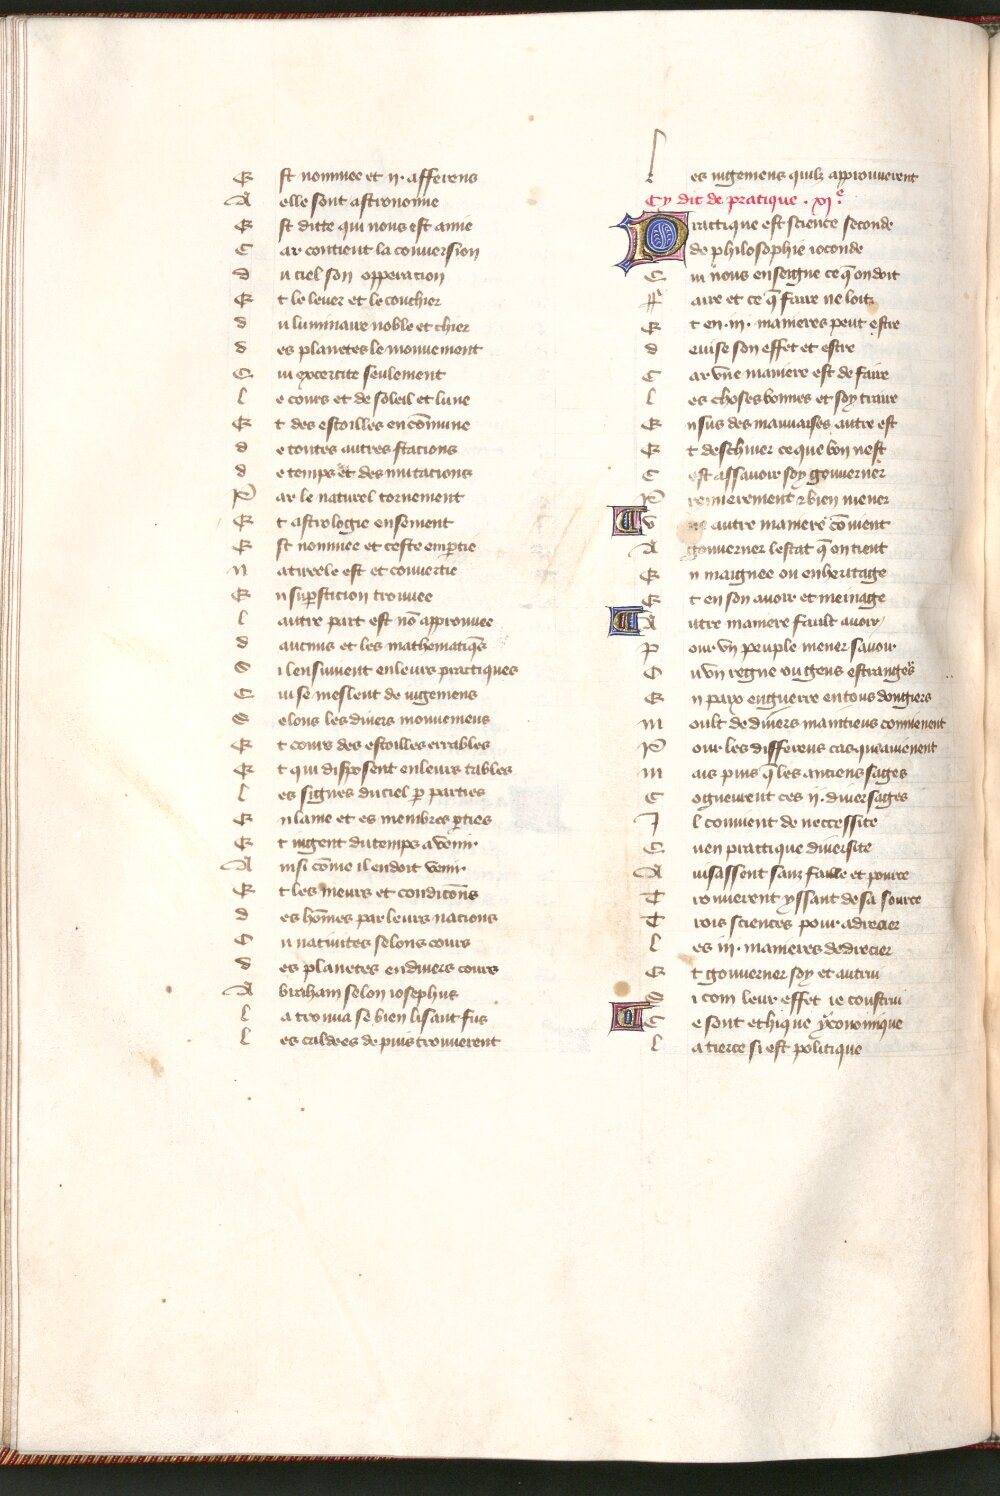 Est nommee et .ij. afferens
A elle sont astronomie
Est ditte qui nous est amie
Car contient la conversion
du ciel son opperacion
Et le lever et le couchier
du luminaire noble et chier
des planetes le mouvement
Cui excercite seulement
le cours et de soleil et lune
Et des estoilles en cõmune
de toutes autres stacions
de temps et des mutacions
Par le naturel tornement
Et astrologie ensement
Est nommee et ceste en ꝑtie
naturele est et convertie
En suꝑsticion trouvee
lautre part est nõ approuvee
daucuns et les mathematiq̃s
Si lensuivent en leurs practiques
Cui se meslent de iugemens
Selons les divers mouvemens
Et cours des estoilles errables
Et qui disposent en leurs tables
les signes du ciel ꝑ parties
En lame et es membres ꝑties
Et iugent du temps a venir
Ainsi cõme il en doit venir
Et les meurs et condicõns
des hõmes par leurs nacions
Ou nativites selons cours
des planetes en divers cours
Abraham selon iosephus
la trouva se bien lisant fus
les caldees depuis trouverent
les iugemens quilz approuverent
Cy dit de pratique . xjͤ.
Practique est science seconde
de philosophie ioconde
Cui nous enseigne ce q̃ on doit
Faire et ce q̃ faire ne loit
Et en .iij. manieres peut estre
devise son effet et estre
Car vne maniere est de faire
les choses bonnes et soy traire
Ensus des mauvaises autre est
Et deschiver ce que bon nest
Cest assavoir soy gouverner
Premierement et bien mener
Une autre maniere cõment
A gouverner lestat q̃ on tient
En maignee ou en heritage
Et en son avoir et meinage
Autre maniere fault avoir
pour vn peuple mener savoir
Ou vn regne ou gens estranges
En paix en guerre en tous dongiers
moult de divers maintiens conviennent
Pour les differens cas qui aviennent
mais puis q̃ les anciens sages
Cogneurent ces .ij. diversages
Il convient de neccessite
Cuen practtique diversite
Avisassent sanz faille et pource
Trouverent yssant de sa source
Trois sciences pour adrecier
les .iij. manieres dedrecier
Et gouverner soy et autrui
Si com leur effet ie construi
Ce sont ethique yconomique
la tierce si est politique